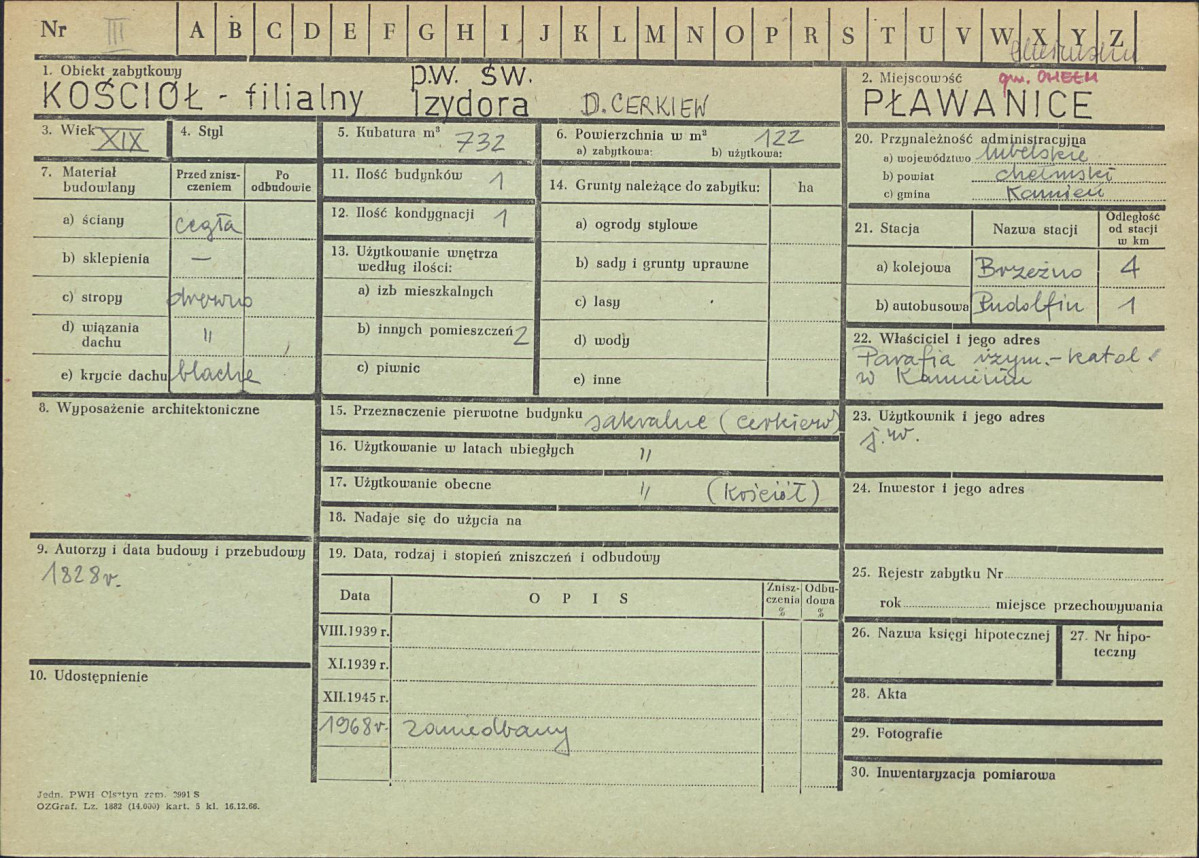 Nr III A B C D E F G H I J K L M N O P R S T U V W X Y Z
1. Obiekt zabytkowy
KOŚCIÓŁ - filialny p.w. św. Izydora D. CERKIEW
2. Miejscowość gm. CHEŁM
PŁAWANICE
3. Wiek XIX
4. Styl
5. Kubatura m³ 732
6. Powierzchnia w m² 122
a) zabytkowa: b) użytkowa:
7. Materiał budowlany
Przed zniszczeniem
Po odbudowie
a) ściany cegła
b) sklepienia —
c) stropy drewno
d) wiązania dachu "
e) krycie dachu blachę
8. Wyposażenie architektoniczne
9. Autorzy i data budowy i przebudowy
1828 r.
10. Udostępnienie
11. Ilość budynków 1
12. Ilość kondygnacji 1
13. Użytkowanie wnętrza według ilości:
a) izb mieszkalnych
b) innych pomieszczeń 2
c) piwnic
14. Grunty należące do zabytku: ha
a) ogrody stylowe
b) sady i grunty uprawne
c) lasy
d) wody
e) inne
15. Przeznaczenie pierwotne budynku sakralne (cerkiew)
16. Użytkowanie w latach ubiegłych "
17. Użytkowanie obecne " (kościół)
18. Nadaje się do użycia na
19. Data, rodzaj i stopień zniszczeń i odbudowy
Data
OPIS
Zniszczenia %
Odbudowa %
VIII.1939 r.
XI.1939 r.
XII.1945 r.
1968 r. zaniedbany
20. Przynależność administracyjna
a) województwo lubelskie
b) powiat chełmski
c) gmina Kamień
21. Stacja
Nazwa stacji
Odległość od stacji w km
a) kolejowa Brzeźno 4
b) autobusowa Rudolfin 1
22. Właściciel i jego adres
Parafia rzym.-katol.
w Kamieniu
23. Użytkownik i jego adres
j.w.
24. Inwestor i jego adres
25. Rejestr zabytku Nr
rok miejsce przechowywania
26. Nazwa księgi hipotecznej
27. Nr hipoteczny
28. Akta
29. Fotografie
30. Inwentaryzacja pomiarowa
Jedn. PWH Olsztyn zam. 2991 S
OZGraf. Lz. 1882 (14.600) kart. 5 kl. 16.12.66.